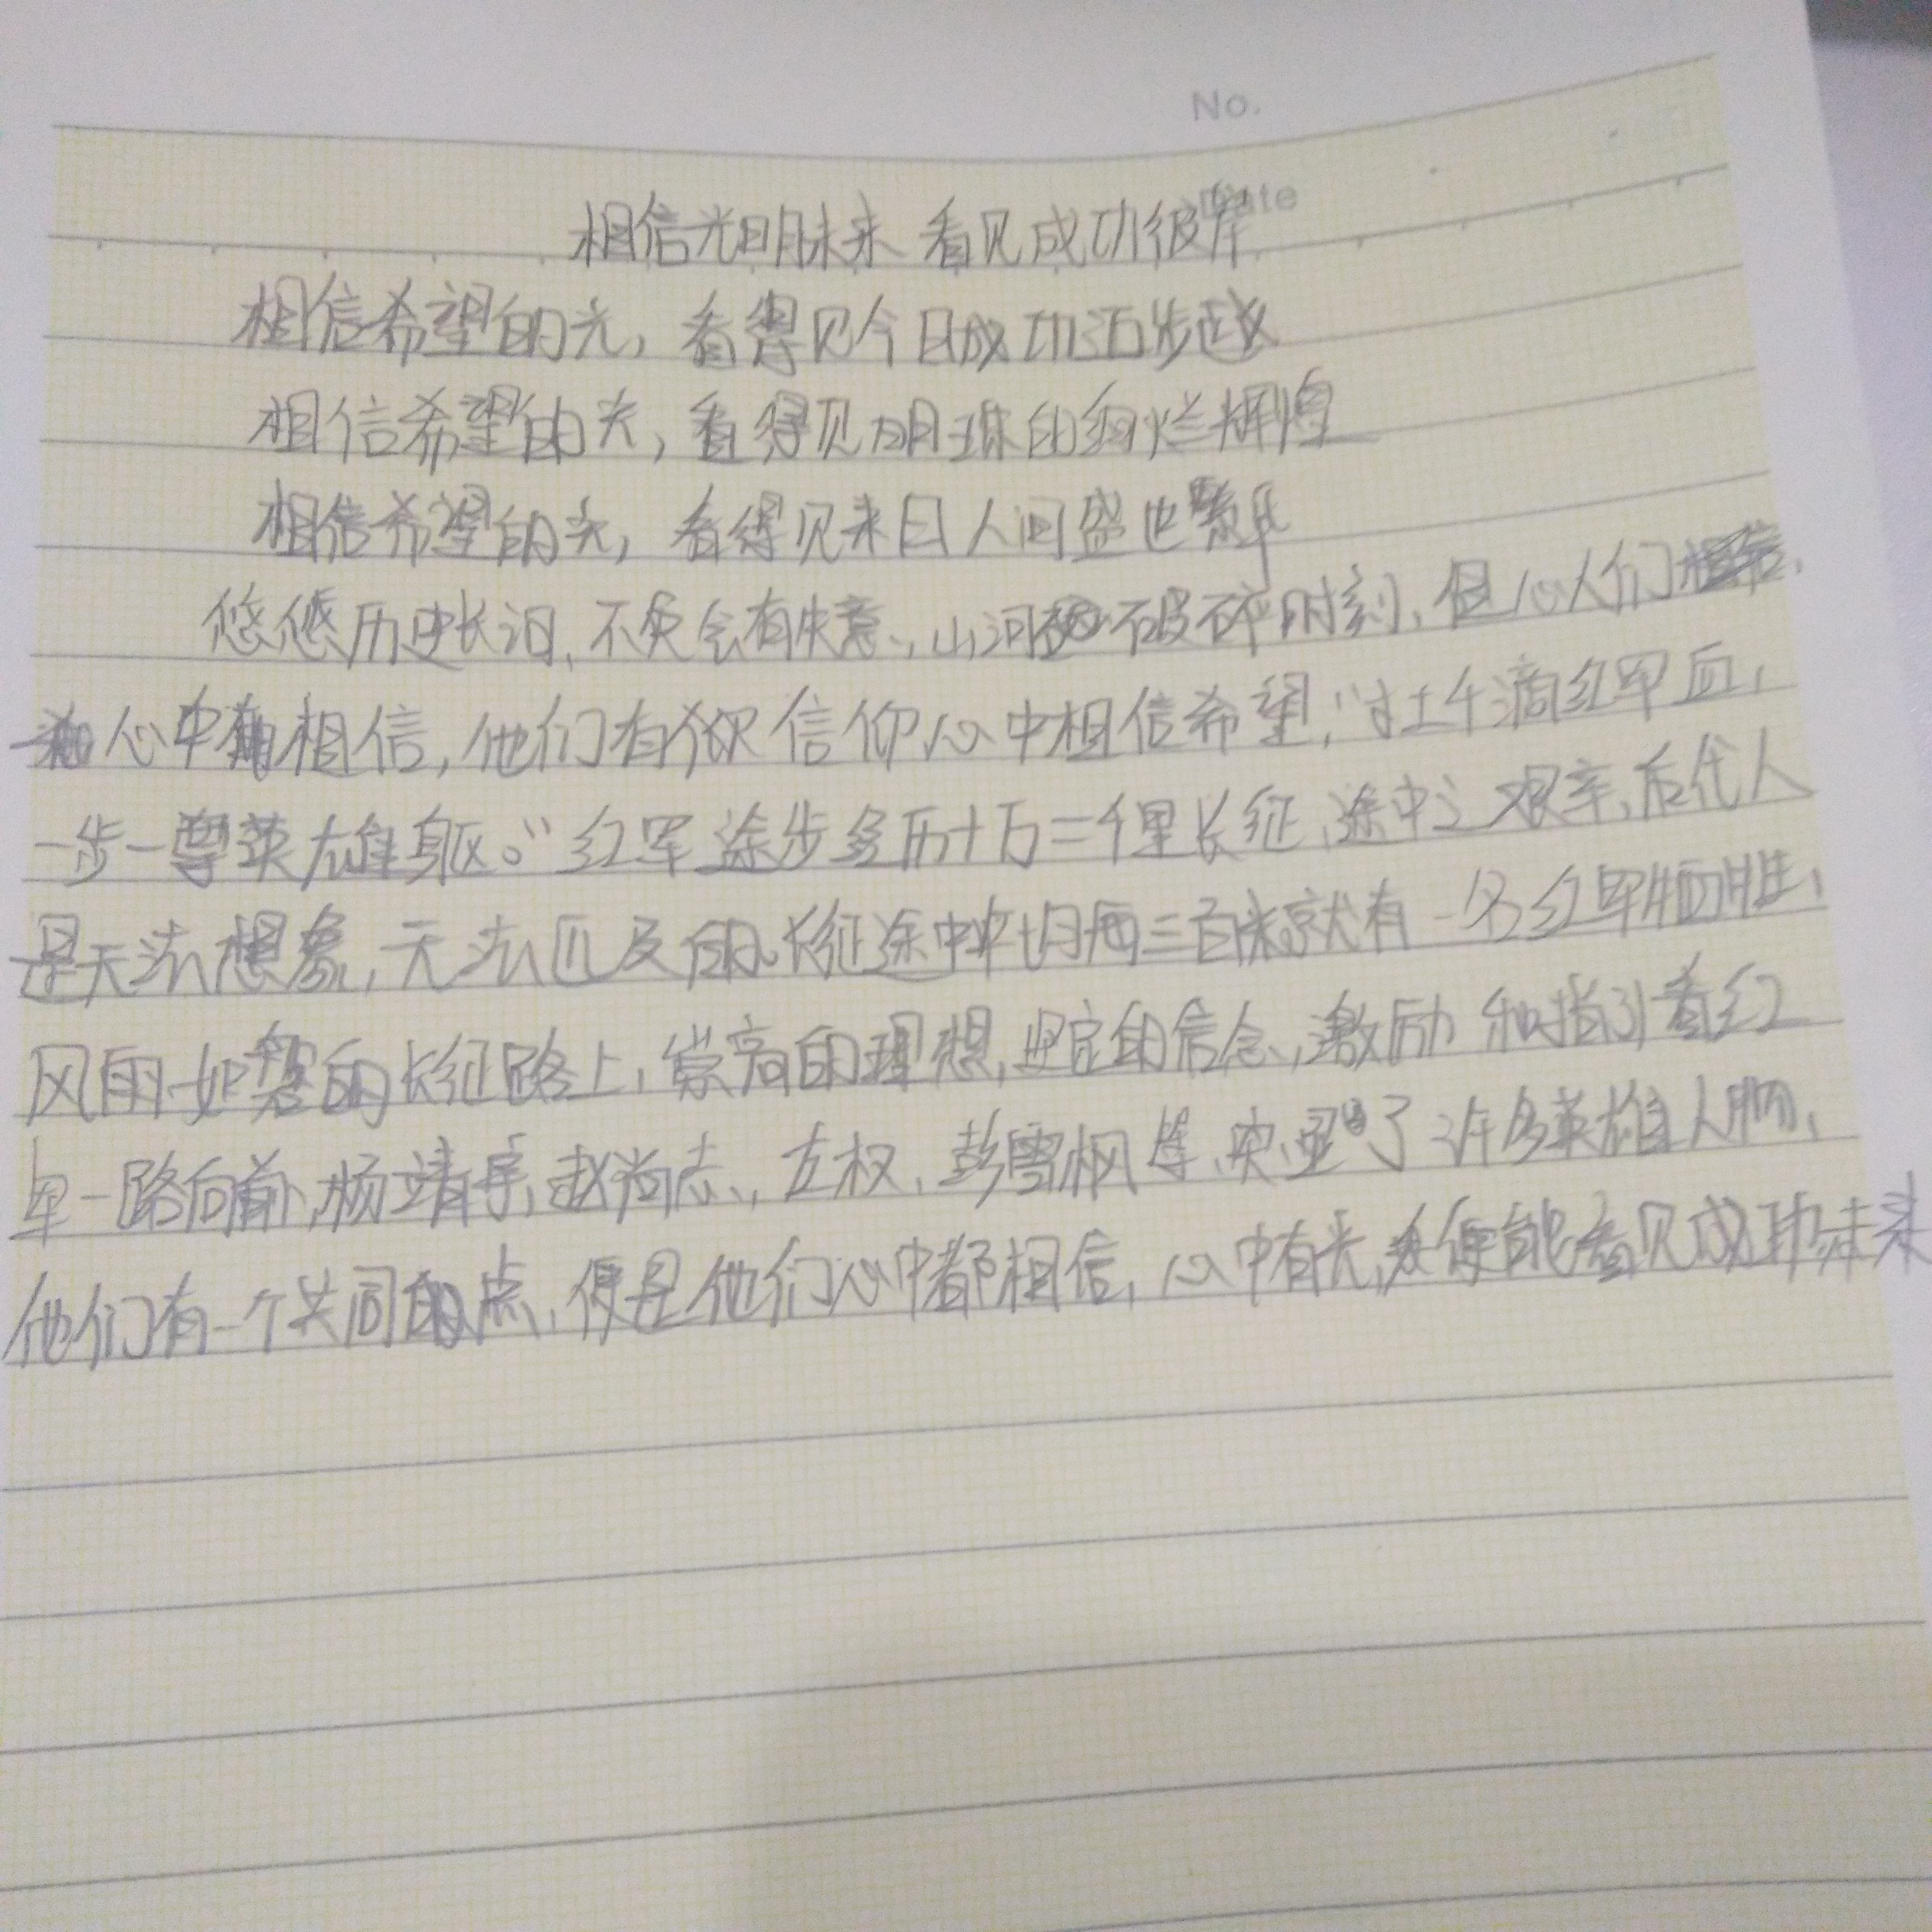 No.
Date
相信光明未来 看见成功彼岸
相信希望的光，看得见今日成功迈步越
相信希望的光，看得见明珠的绚烂辉煌
相信希望的光，看得见来日人间盛世繁华
悠悠历史长河，不免会有失意、山河破碎时刻，但人们
心中有相信，他们有信仰心中相信希望，“寸土千滴红军血，
一步一尊英雄躯。”红军途步多历十万二千里长征，途中之艰辛，后代人
是无法想象，无法匹及的。长征途中平均每两三百米就有一名红军牺牲，
风雨如磐的长征路上，崇高的理想，坚定的信念，激励和指引着红
军一路向前，杨靖宇，赵尚志，左权，彭雪枫等，突显了许多英雄人物，
他们有一个共同的点，便是他们心中都相信，心中有光，便能看见成功未来